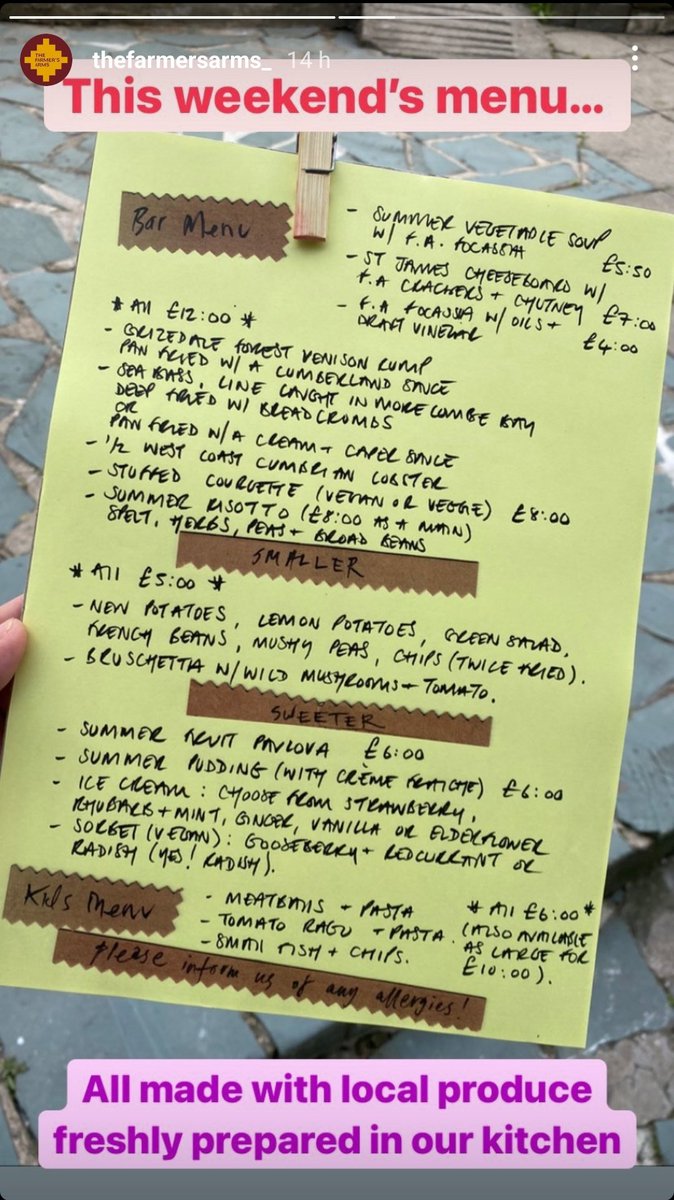 THE
FARMER'S
ARMS
thefarmersarms_ 14 h
This weekend's menu...
Bar Menu
- SUMMER VEGETABLE SOUP
W/ F.A. FOCASSIA
£5:50
- ST JAMES CHEESEBOARD W/
F.A CRACKERS + CHUTNEY £7:00
- F.A FOCASSIA W/ OILS +
DRAFT VINEGAR £4:00
* All £12:00 *
- GRIZEDALE FOREST VENISON RUMP
PAN FRIED W/ A CUMBERLAND SAUCE
- SEA BASS, LINE CAUGHT IN MORECOMBE BAY
DEEP FRIED W/ BREADCRUMBS
OR
PAN FRIED W/ A CREAM + CAPER SAUCE
- 1/2 WEST COAST CUMBRIAN LOBSTER
- STUFFED COURGETTE (VEGAN OR VEGGIE) £8:00
- SUMMER RISOTTO (£8:00 AS A MAIN)
SPELT, HERBS, PEAS + BROAD BEANS
SMALLER
* All £5:00 *
- NEW POTATOES, LEMON POTATOES, GREEN SALAD,
FRENCH BEANS, MUSHY PEAS, CHIPS (TWICE FRIED).
- BRUSCHETTA W/ WILD MUSHROOMS + TOMATO.
SWEETER
- SUMMER FRUIT PAVLOVA £6:00
- SUMMER PUDDING (WITH CRÈME FRAICHE) £6:00
- ICE CREAM: CHOOSE FROM STRAWBERRY,
RHUBARB + MINT, GINGER, VANILLA OR ELDERFLOWER
- SORBET (VEGAN): GOOSEBERRY + REDCURRANT OR
RADISH (YES! RADISH).
Kids Menu
- MEATBALLS + PASTA
- TOMATO RAGU + PASTA.
- SMALL FISH + CHIPS.
* All £6:00 *
(ALSO AVAILABLE
AS LARGE FOR
£10:00).
Please inform us of any allergies!
All made with local produce
freshly prepared in our kitchen